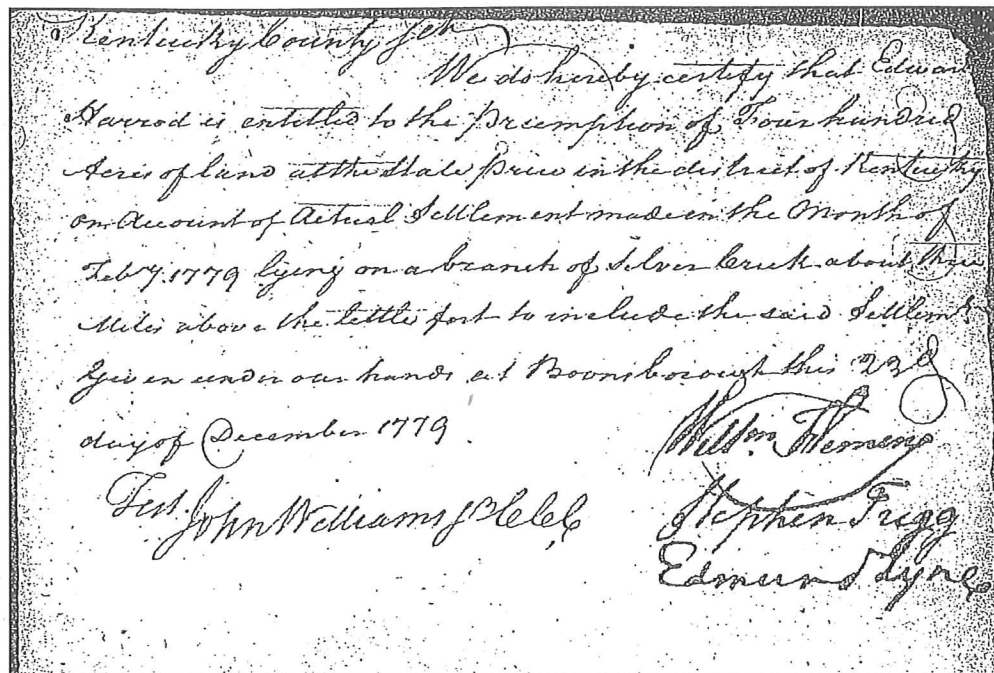 Kentucky County Sct
We do hereby certify that Edward
Harrod is entitled to the Preemption of Four hundred
Acres of land at the State price in the district of Kentucky
on Account of Actual Settlement made in the Month of
Feby. 1779 lying on a branch of Silver Creek about three
Miles above the little fort to include the said Settlemt
Given under our hands at Boonsborough this 23d
day of December 1779
Willm. Fleming
Test.
John Williams Jr CCC
Stephen Trigg
Edmund Lyne